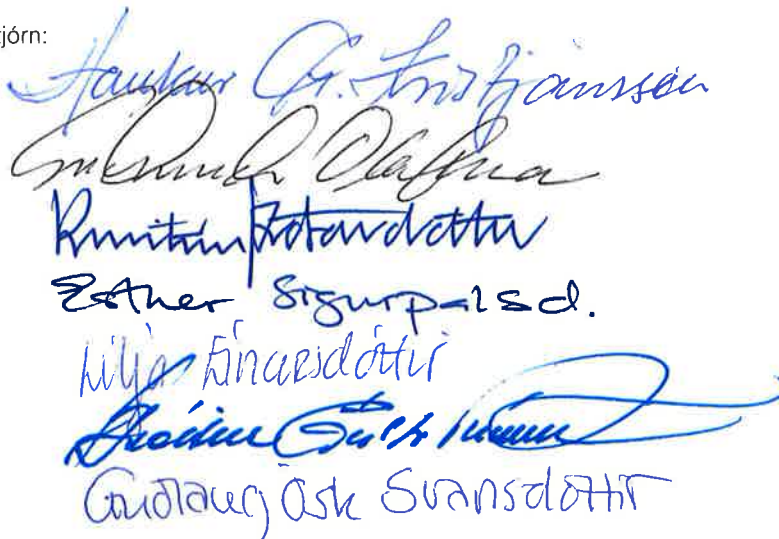 tjórn:
Haukur G. Kristjánsson
Ólafsson
Kristín Þórðardóttir
Esther Sigurpalsd.
Lilja Einarsdóttir
Guðlaug Ósk Svansdóttir